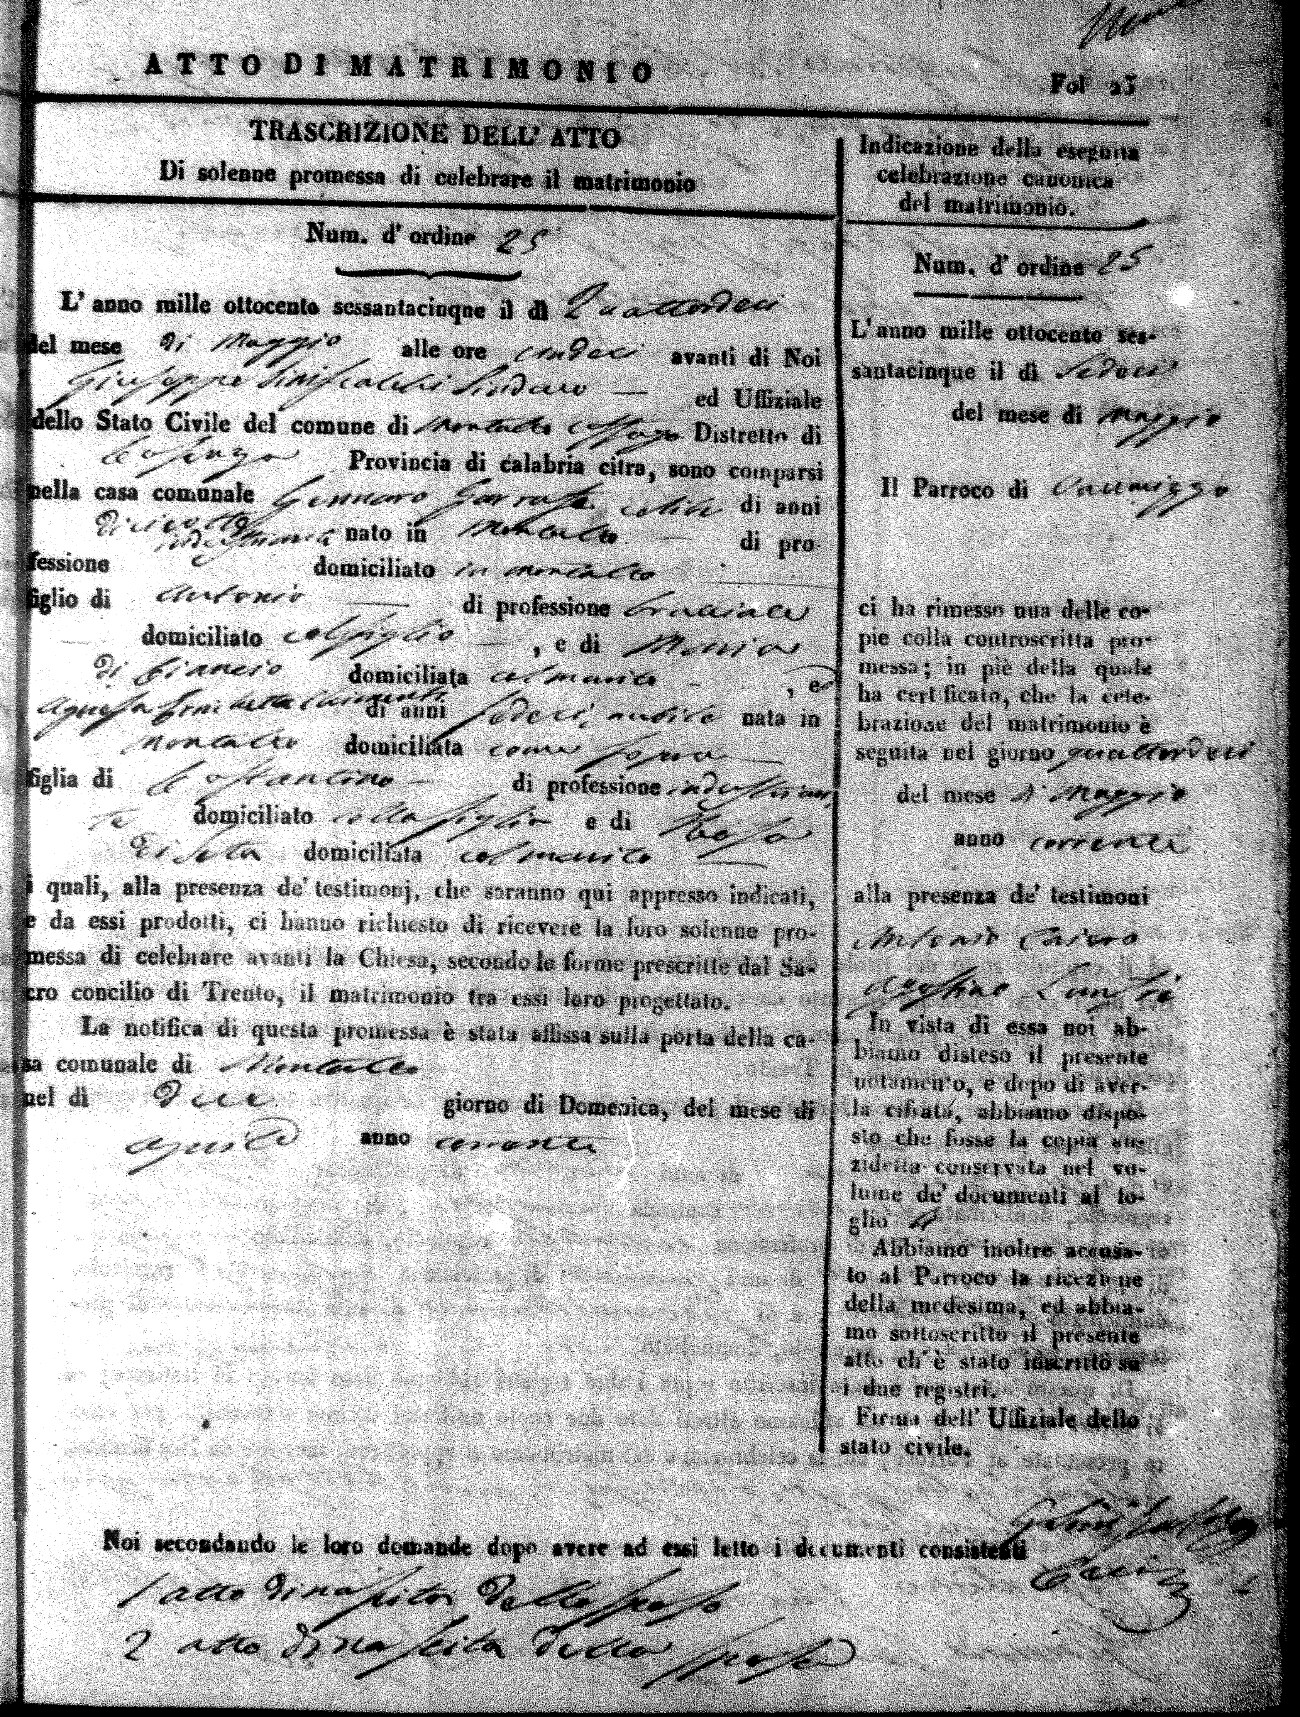 ATTO DI MATRIMONIO
Fol 25
TRASCRIZIONE DELL' ATTO
Di solenne promessa di celebrare il matrimonio
Num. d' ordine 25
L' anno mille ottocento sessantacinque il dì Quattordeci
del mese di Maggio alle ore undeci avanti di Noi
Giuseppe Siniscalchi Sindaco ed Uffiziale
dello Stato Civile del comune di Montalto Distretto di
Cosenza Provincia di calabria citra, sono comparsi
nella casa comunale Gennaro celibe di anni
diciotto nato in Montalto di pro-
fessione domiciliato in Montalto
figlio di Antonio di professione bracciale
domiciliato col figlio , e di Maria
di Biancio domiciliata col marito , e
Agnesa Benedetta di anni sedeci, nubile nata in
Montalto domiciliata come sopra
figlia di Costantino di professione industrian
te domiciliato colla figlia e di Rosa
di Seta domiciliata col marito
i quali, alla presenza de' testimonj, che saranno qui appresso indicati,
e da essi prodotti, ci hanno richiesto di ricevere la loro solenne pro-
messa di celebrare avanti la Chiesa, secondo le forme prescritte dal Sa-
cro concilio di Trento, il matrimonio tra essi loro progettato.
La notifica di questa promessa è stata affissa sulla porta della ca-
sa comunale di Montalto
nel dì Due giorno di Domenica, del mese di
aprile anno corrente
Noi secondando le loro domande dopo avere ad essi letto i documenti consistenti
1 atto di nascita dello sposo
2 atto di nascita della sposa
Indicazione della eseguita
celebrazione canonica
del matrimonio.
Num. d' ordine 25
L' anno mille ottocento ses-
santacinque il dì Sedeci
del mese di Maggio
Il Parroco di
ci ha rimesso una delle co-
pie colla controscritta pro-
messa; in piè della quale
ha certificato, che la cele-
brazione del matrimonio è
seguita nel giorno quattordeci
del mese di Maggio
anno corrente
alla presenza de' testimoni
Antonio Cairo
In vista di essa noi ab-
biamo disteso il presente
notamento, e dopo di aver-
la cifrata, abbiamo dispo-
sto che fosse la copia su-
zidetta conservata nel vo-
lume de' documenti al fo-
glio
Abbiamo inoltre accusa-
to al Parroco la ricezione
della medesima, ed abbia-
mo sottoscritto il presente
atto ch' è stato inscritto su
i due registri.
Firma dell' Uffiziale dello
stato civile.